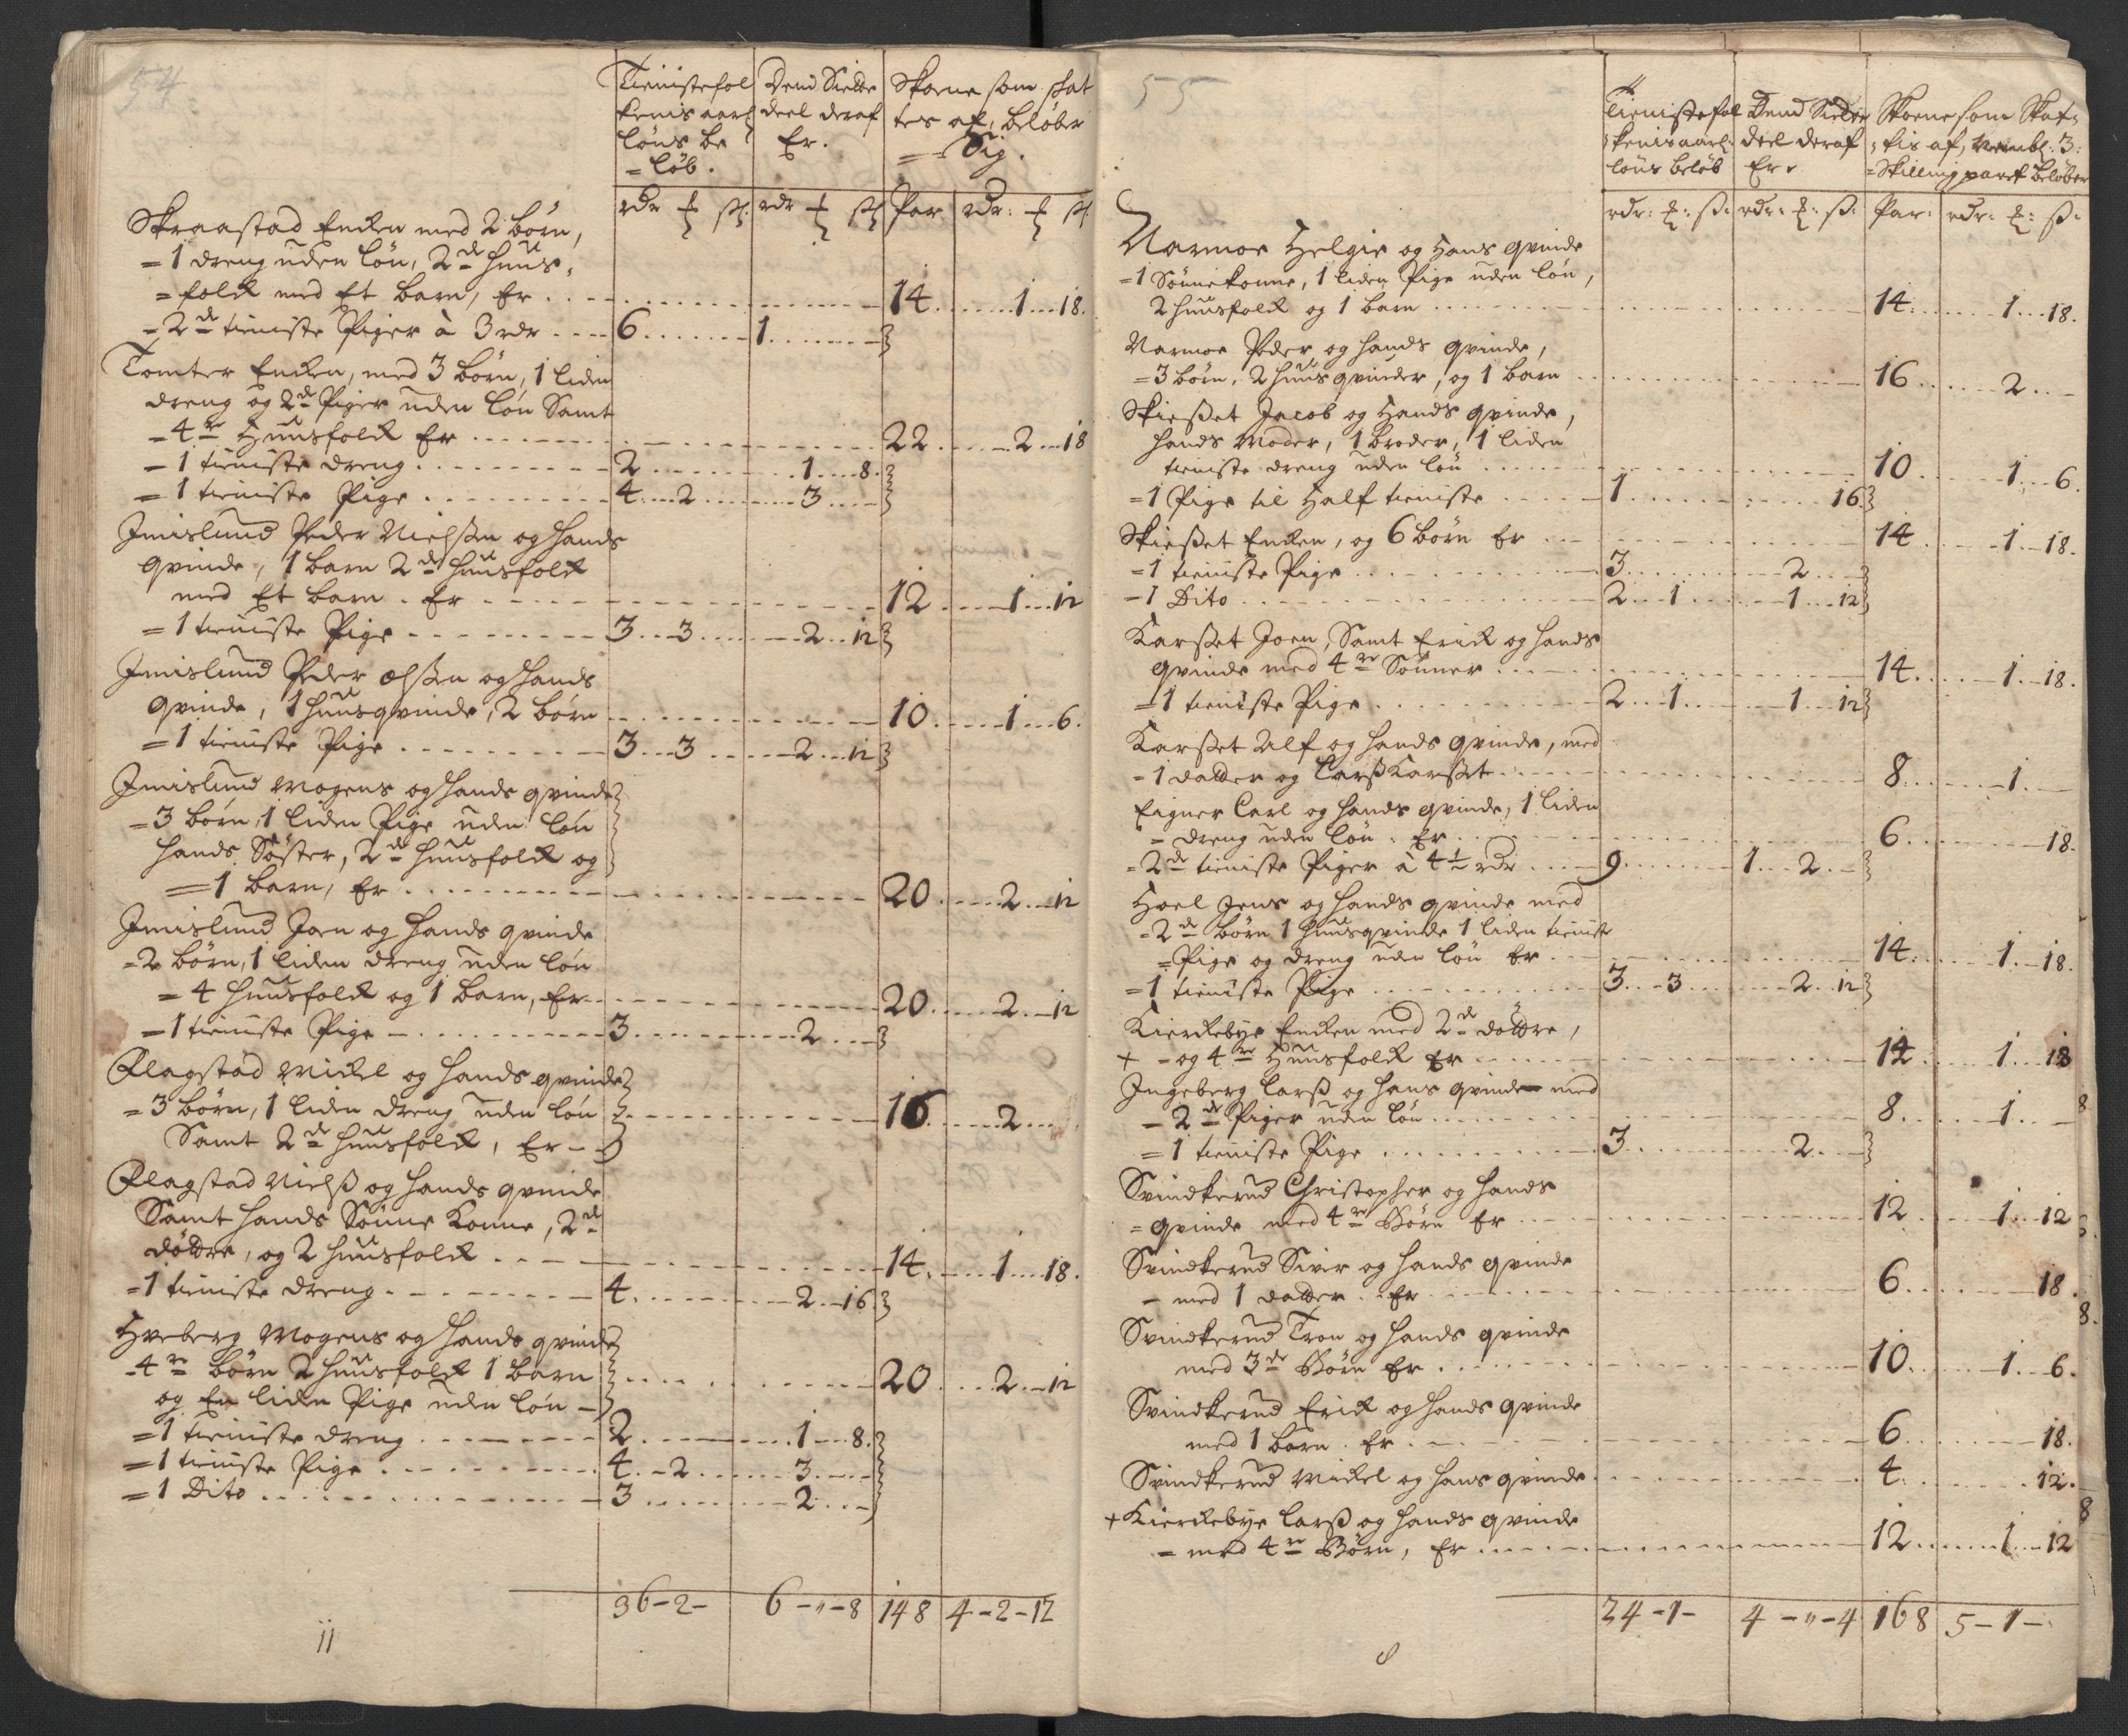 54
Tienistefol Dend Siette Skoene som skat
kenis aarl: deel deraf tes af, beløber
løns be Er. = Sig.
= løb.
rdr ℔ ß rdr ℔ ß Par rdr: ℔ ß
Skraastad Enken med 2 børn,
= 1 dreng uden løn, 2de huus,
= folk med Et barn, Er .... 14 ... 1 ... 18.
= 2de tieniste Piger à 3 rdr .... 6 ... 1 ...
Tomter Enken, med 3 børn, 1 liden
dreng og 2de Piger uden løn Samt
= 4re Huusfolk Er .... 22 ... 2 ... 18
= 1 tieniste dreng .... 2 ... 1 ... 8.
= 1 tieniste Pige .... 4 ... 2 ... 3 ...
Imislund Peder Nielsen og hands
qvinde, 1 barn 2de huusfolk
med Et barn . Er .... 12 ... 1 ... 12
= 1 tieniste Pige .... 3 ... 3 ... 2 ... 12
Imislund Peder olsen og hands
qvinde, 1 huusqvinde, 2 børn .... 10 ... 1 ... 6.
= 1 tieniste Pige .... 3 ... 3 ... 2 ... 12
Imislund Mogens og hands qvinde
= 3 børn, 1 liden Pige uden løn
hands Søster, 2de huusfolk og
= 1 barn, Er .... 20 ... 2 ... 12
Imislund Joen og hands qvinde
= 2 børn, 1 liden dreng uden løn
= 4 huusfolk og 1 barn, Er .... 20 ... 2 ... 12
= 1 tieniste Pige .... 3 ... 2 ...
Flagstad Mickel og hands qvinde
= 3 børn, 1 liden dreng uden løn .... 16 ... 2 ...
Samt 2de huusfolk, Er
Flagstad Nielß og hands qvinde
Samt hands Sønne Konne, 2de
døttre, og 2 huusfolk .... 14 ... 1 ... 18.
= 1 tieniste dreng .... 4 ... 2 ... 16
Hveberg Mogens og hands qvinde
= 4re børn 2 huusfolk 1 barn .... 20 ... 2 ... 12
og En liden Pige uden løn
= 1 tieniste dreng .... 2 ... 1 ... 8.
= 1 tieniste Pige .... 4 ... 2 ... 3 ...
= 1 Dito .... 3 ... 2 ...
36 - 2 - 6 - " - 8 148 4 - 2 - 12
ii
55
Tienistefol Dend Siette Skoene som Skat,
kenis aarl: deel deraf tis af, 3:
løns beløb Er = Skilling paret beløber
rdr: ℔: ß: rdr: ℔: ß: Par: rdr: ℔: ß:
Narmoe Helgie og Hans qvinde
= 1 Sønnekonne, 1 liden Pige uden løn,
2 huusfolk og 1 barn .... 14 ... 1 ... 18.
Narmoe Peder og hands qvinde,
= 3 børn, 2 huus qvinder, og 1 barn .... 16 ... 2 ...
Skießet Jacob og Hands qvinde,
hands Moder, 1 broder, 1 liden
tieniste dreng uden løn .... 10 ... 1 ... 6.
= 1 Pige til Half tieniste .... 1 ... 16
Skießet Enken, og 6 børn Er .... 14 ... 1 ... 18.
= 1 tieniste Pige .... 3 ... 2 ...
= 1 Dito .... 2 ... 1 ... 1 ... 12
Karßet Joen, Samt Erick og hands
qvinde med 4re Sønner .... 14 ... 1 ... 18.
= 1 tieniste Pige .... 2 ... 1 ... 1 ... 12
Karßet Alf og hands qvinde, med
= 1 datter og Larß Karßet .... 8 ... 1 ...
Eigner Carl og hands qvinde, 1 liden
= dreng uden løn . Er .... 6 ... 18.
= 2de tieniste Piger à 4½ rdr .... 9 ... 1 ... 2 ...
Hoel Jens og hands qvinde med
= 2de børn 1 huusqvinde 1 liden tieniste
= Pige og dreng uden løn Er .... 14 ... 1 ... 18.
= 1 tieniste Pige .... 3 ... 3 ... 2 ... 12
Kierkebye Enken med 2de døttre,
+ = og 4re Huusfolk Er .... 14 ... 1 ... 18
Ingeberg Larß og hans qvinde med
= 2de Piger uden løn .... 8 ... 1 ...
= 1 tieniste Pige .... 3 ... 2 ...
Svindkerud Christopher og hands
= qvinde med 4re Børn Er .... 12 ... 1 ... 12
Svindkerud Sivr og hands qvinde
= med 1 datter . Er .... 6 ... 18.
Svindkerud Tron og hands qvinde
med 3de Børn Er .... 10 ... 1 ... 6.
Svindkerud Erick og hands qvinde
med 1 barn . Er .... 6 ... 18.
Svindkerud Mickel og hans qvinde .... 4 ... 12.
+ Kierkebye Larß og hands qvinde
= med 4re Børn, Er .... 12 ... 1 ... 12
24 - 1 - 4 - " - 4 168 5 - 1 -